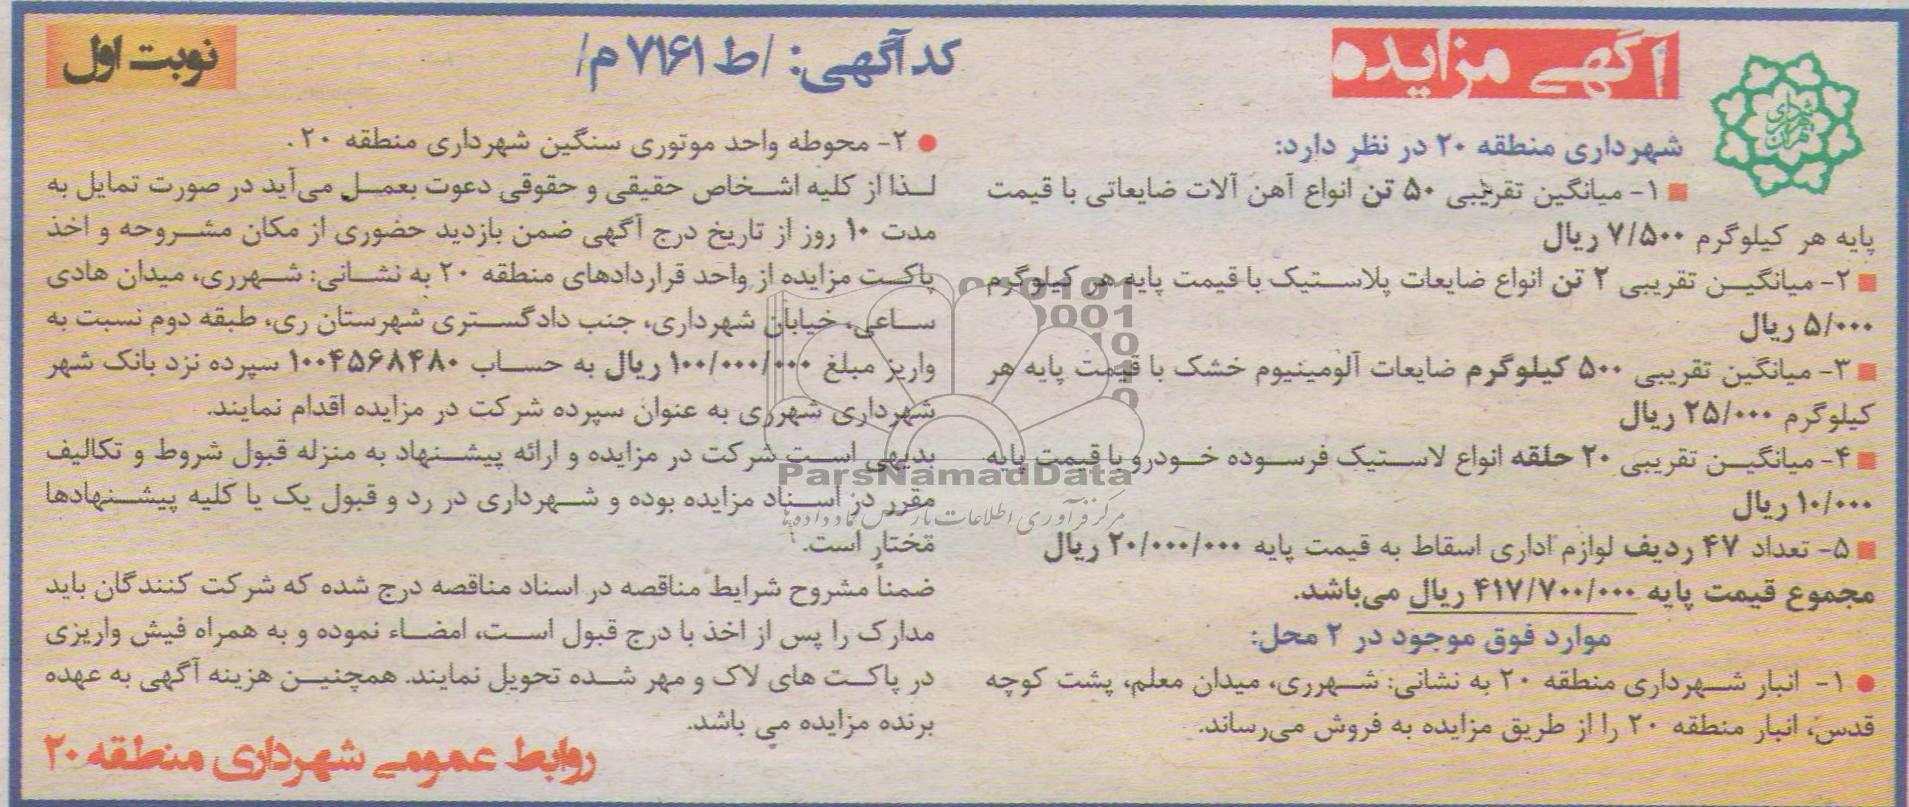 آگهی مزایده
کد آگهی: /ط ۷۱۶۱ م/
نوبت اول
شهرداری منطقه ۲۰ در نظر دارد:
۱- میانگین تقریبی ۵۰ تن انواع آهن آلات ضایعاتی با قیمت
پایه هر کیلوگرم ۷/۵۰۰ ریال
۲- میانگین تقریبی ۲ تن انواع ضایعات پلاستیک با قیمت پایه هر کیلوگرم
۵/۰۰۰ ریال
۳- میانگین تقریبی ۵۰۰ کیلوگرم ضایعات آلومینیوم خشک با قیمت پایه هر
کیلوگرم ۲۵/۰۰۰ ریال
۴- میانگین تقریبی ۲۰ حلقه انواع لاستیک فرسوده خودرو با قیمت پایه
۱۰/۰۰۰ ریال
۵- تعداد ۴۷ ردیف لوازم اداری اسقاط به قیمت پایه ۲۰/۰۰۰/۰۰۰ ریال
مجموع قیمت پایه ۴۱۷/۷۰۰/۰۰۰ ریال می‌باشد.
موارد فوق موجود در ۲ محل:
۱- انبار شهرداری منطقه ۲۰ به نشانی: شهرری، میدان معلم، پشت کوچه
قدس، انبار منطقه ۲۰ را از طریق مزایده به فروش می‌رساند.
۲- محوطه واحد موتوری سنگین شهرداری منطقه ۲۰.
لذا از کلیه اشخاص حقیقی و حقوقی دعوت بعمل می‌آید در صورت تمایل به
مدت ۱۰ روز از تاریخ درج آگهی ضمن بازدید حضوری از مکان مشروحه و اخذ
پاکت مزایده از واحد قراردادهای منطقه ۲۰ به نشانی: شهرری، میدان هادی
ساعی، خیابان شهرداری، جنب دادگستری شهرستان ری، طبقه دوم نسبت به
واریز مبلغ ۱۰۰/۰۰۰/۰۰۰ ریال به حساب ۱۰۰۴۵۶۸۴۸۰ سپرده نزد بانک شهر
شهرداری شهرری به عنوان سپرده شرکت در مزایده اقدام نمایند.
بدیهی است شرکت در مزایده و ارائه پیشنهاد به منزله قبول شروط و تکالیف
مقرر در اسناد مزایده بوده و شهرداری در رد و قبول یک یا کلیه پیشنهادها
مختار است.
ضمناً مشروح شرایط مناقصه در اسناد مناقصه درج شده که شرکت کنندگان باید
مدارک را پس از اخذ با درج قبول است، امضاء نموده و به همراه فیش واریزی
در پاکت های لاک و مهر شده تحویل نمایند. همچنین هزینه آگهی به عهده
برنده مزایده می باشد.
روابط عمومی شهرداری منطقه ۲۰
ParsNamadData